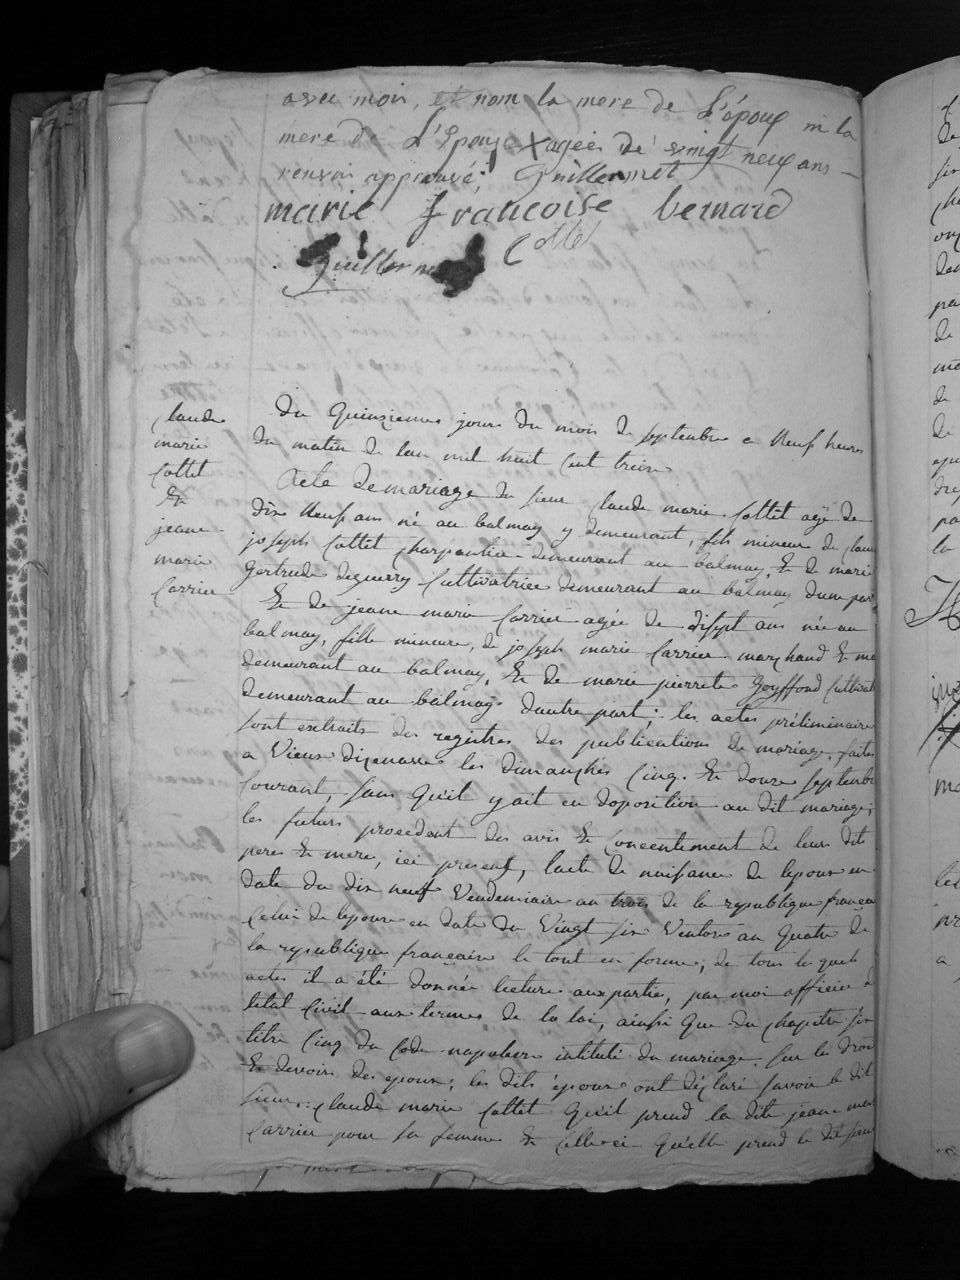 avec moi, et non la mere de L'époux ni la
mere de L'Epouse X agées de vingt neuf ans
renvoi approuvé; Guillermet
marie francoise bernard
Cottet
Guillerme
Claude
marie
Cottet
&
jeane
marie
Carrier
du Quinzieme jour du mois de septembre a Neuf heures
du matin de lan mil huit Cent treize
Acte de mariage du sieur Claude marie Cottet agé de
dix Neuf ans né au balmay y demeurant, fils mineur de Claude
joseph Cottet Charpentier demeurant au balmay, & de marie
Gertrude deguerry Cultivatrice demeurant au balmay dune part
Et de jeane marie Carrier agée de disept ans née au
balmay, fille mineure, de joseph marie Carrier marchand & me
demeurant au balmay, & de marie pierrete Goyffond Cultivat
demeurant au balmay dautre part; les actes préliminaires
sont extraits des registres des publications de mariage faites
a Vieux dizenave les dimanches Cinq & douze septembre
Courant, sans Qu'il y ait eu doposition au dit mariage;
les futurs procedent des avis & Concentement de leur dit
peres & mere, ici present, lacte de naissance de lepoux en
date du dix neuf Vendemiaire an trois de la republique francai
Celui de lepouse en date du Vingt six Ventose an Quatre de
la republique francaise le tout en forme; de tous le quels
actes il a été donnée lecture aux partie, par moi officier d
letat Civil aux termes de la loi, ainsi Que du chapitre six
titre Cinq du Code napoleon intitulé du mariage sur les droi
& devoirs des epoux; les dits époux ont déclaré savoir le dit
sieur Claude marie Cottet Qu'il prend la dite jeane mar
Carrier pour sa femme & Celle-ci Qu'elle prend le dit sieur